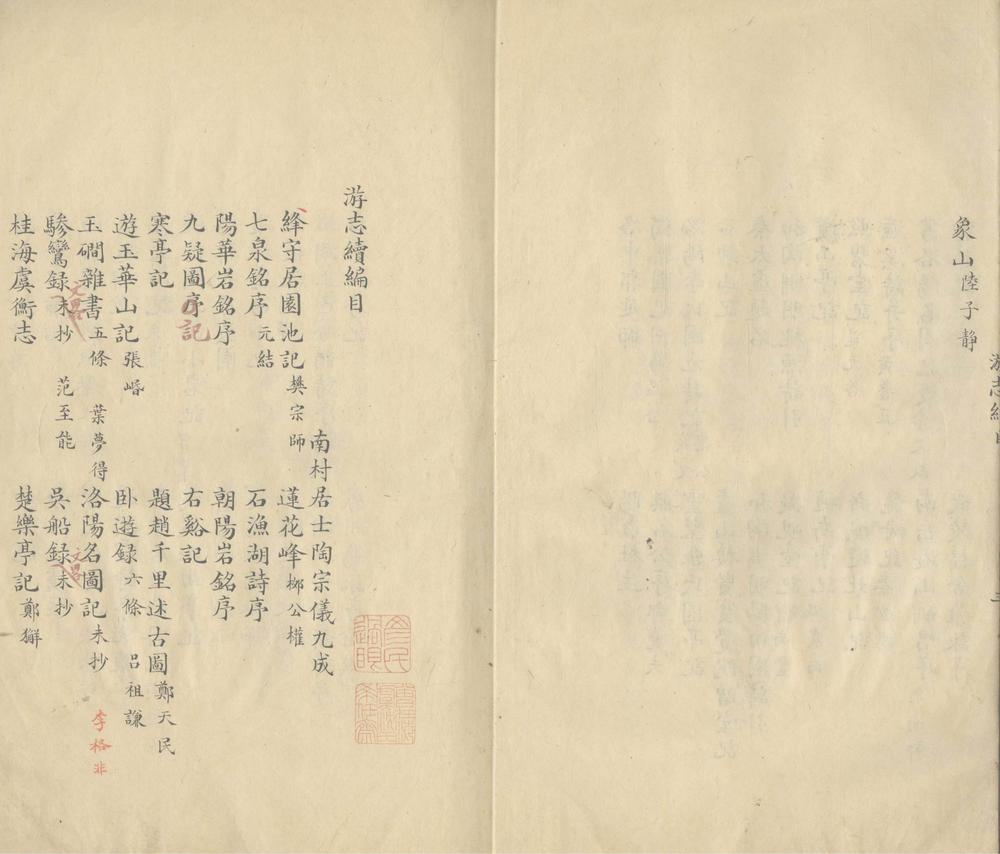 象山陸子靜
游志續
游志續編目
南村居士陶宗儀九成
絳守居園池記 樊宗師 蓮花峰 柳公權
七泉銘序 元結 石漁湖詩序
陽華岩銘序 朝陽岩銘序
九疑圖序記 右谿記
寒亭記 題趙千里述古圖 鄭天民
遊玉華山記 張岷 卧遊録 六條 呂祖謙
玉磵雜書 五條 葉夢得 洛陽名園記 未抄 李格非
驂鸞録 文畧 未抄 范至能 吳船録 文畧 未抄
桂海虞衡志 楚樂亭記 鄭獬